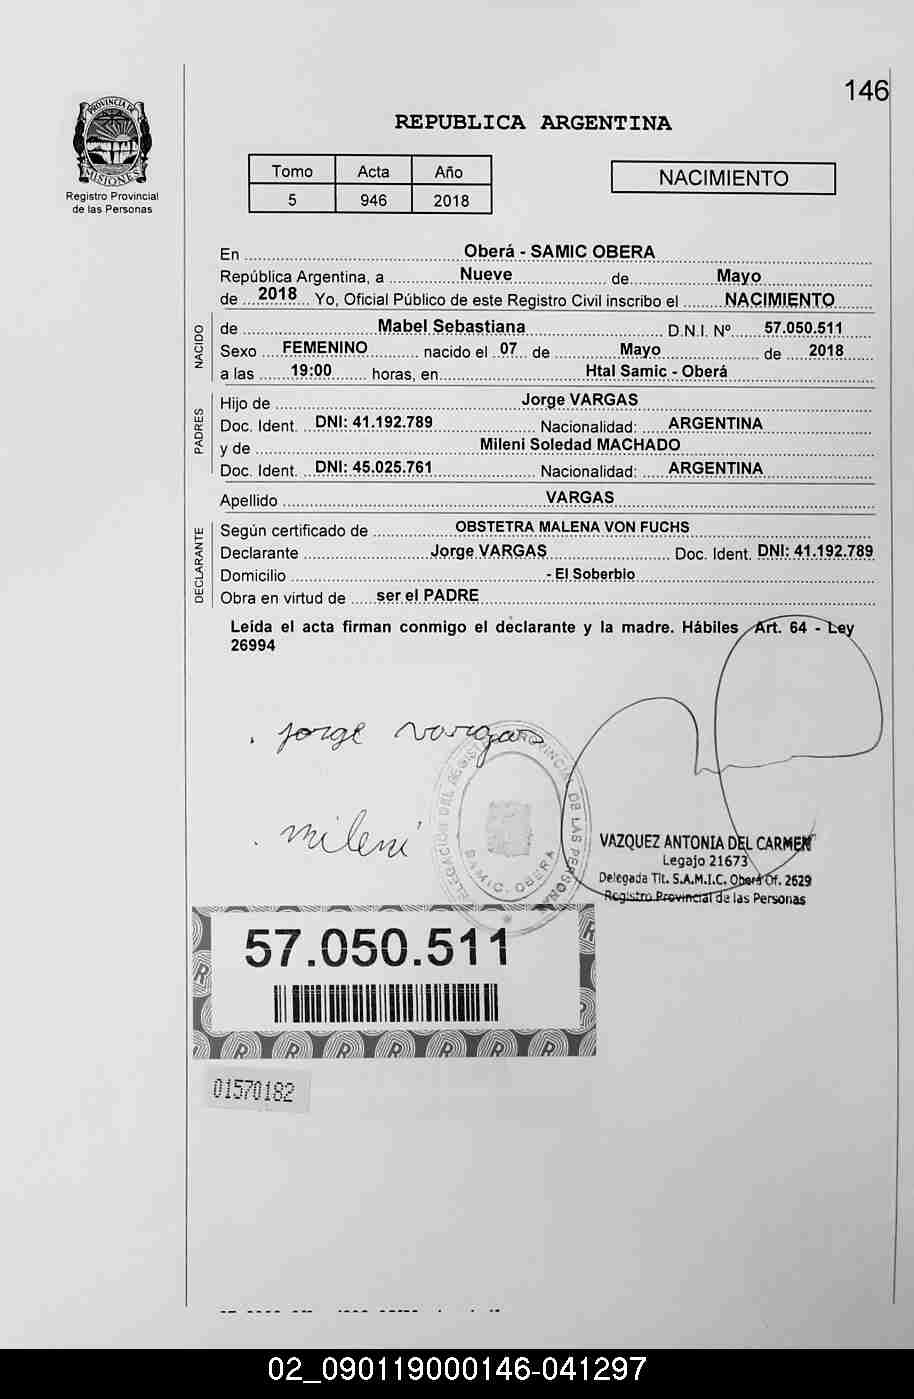 146
PROVINCIA DE
MISIONES
Registro Provincial
de las Personas
REPUBLICA ARGENTINA
Tomo Acta Año
5 946 2018
NACIMIENTO
En Oberá - SAMIC OBERA
República Argentina, a Nueve de Mayo
de 2018 Yo, Oficial Público de este Registro Civil inscribo el NACIMIENTO
NACIDO
de Mabel Sebastiana D.N.I. Nº 57.050.511
Sexo FEMENINO nacido el 07 de Mayo de 2018
a las 19:00 horas, en Htal Samic - Oberá
PADRES
Hijo de Jorge VARGAS
Doc. Ident. DNI: 41.192.789 Nacionalidad: ARGENTINA
y de Mileni Soledad MACHADO
Doc. Ident. DNI: 45.025.761 Nacionalidad: ARGENTINA
Apellido VARGAS
DECLARANTE
Según certificado de OBSTETRA MALENA VON FUCHS
Declarante Jorge VARGAS Doc. Ident. DNI: 41.192.789
Domicilio - El Soberbio
Obra en virtud de ser el PADRE
Leída el acta firman conmigo el declarante y la madre. Hábiles Art. 64 - Ley
26994
jorge vargas
mileni
DELEGACIÓN DEL REGISTRO PROVINCIAL DE LAS PERSONAS
S.A.M.I.C. OBERA
VAZQUEZ ANTONIA DEL CARMEN
Legajo 21673
Delegada Tit. S.A.M.I.C. Oberá Of. 2629
Registro Provincial de las Personas
57.050.511
R R R R R R R
01570182
02_090119000146-041297